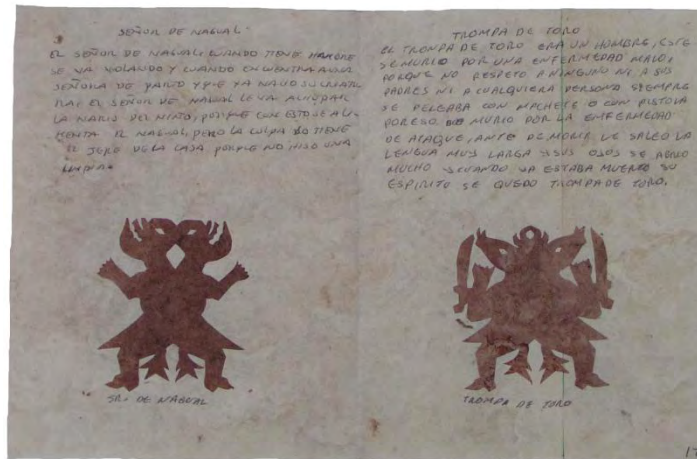 SEÑOR DE NAGUAL
EL SEÑOR DE NAGUAL CUANDO TIENE HAMBRE
SE VA VOLANDO Y CUANDO ENCUENTRA AUNA
SEÑORA DE PARTO YQUE YA NACIO SU CREATU
RA, EL SEÑOR DE NAGUAL LE VA ACHUPAR
LA NARIS DEL NIÑTO, PORQUE CON ESTO SE ALI-
MENTA EL NAGUAL, PERO LA CULPA LO TIENE
EL JEFE DE LA CASA PORQUE NO HISO UNA
LIMPIA
SR. DE NAGUAL
TROMPA DE TORO
EL TROMPA DE TORO ERA UN HOMBRE, ESTE
SE MURIO POR UNA ENFERMEDAD MALO,
PORQUE NO RESPETO A NINGUNO NI A SUS
PADRES NI A CUALQUIERA PERSONA SIEMPRE
SE PELEABA CON MACHETE O CON PISTOLA
POR ESO MURIO POR LA ENFERMEDAD
DE ATAQUE, ANTE DE MORIR LE SALEO LA
LENGUA MUY LARGA Y SUS OJOS SE ABRIO
MUCHO Y CUANDO YA ESTABA MUERTO SU
ESPIRITO SE QUEDO TROMPA DE TORO.
TROMPA DE TORO